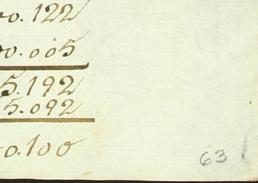 0.122
0.005
5.192
5.092
0.100
63